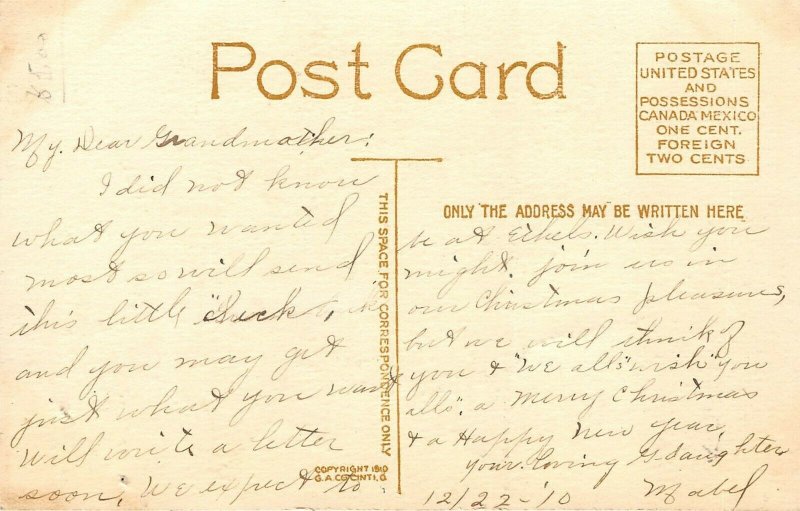 Post Card
POSTAGE
UNITED STATES
AND
POSSESSIONS
CANADA MEXICO
ONE CENT.
FOREIGN
TWO CENTS
My. Dear Grandmother:
I did not know
what you wanted
most so will send
this little
and you may get
just what you want
Will write a letter
soon, We expect to
THIS SPACE FOR CORRESPONDENCE ONLY
COPYRIGHT 1910
G.A.CO.CINTI,O
ONLY THE ADDRESS MAY BE WRITTEN HERE
be at Wish you
might join us in
our Christmas pleasures,
but we will think of
you & "We alls" wish "you
alls". a Merry Christmas
& a Happy New Year,
Your loving G-daughter
12/22-'10 Mabel